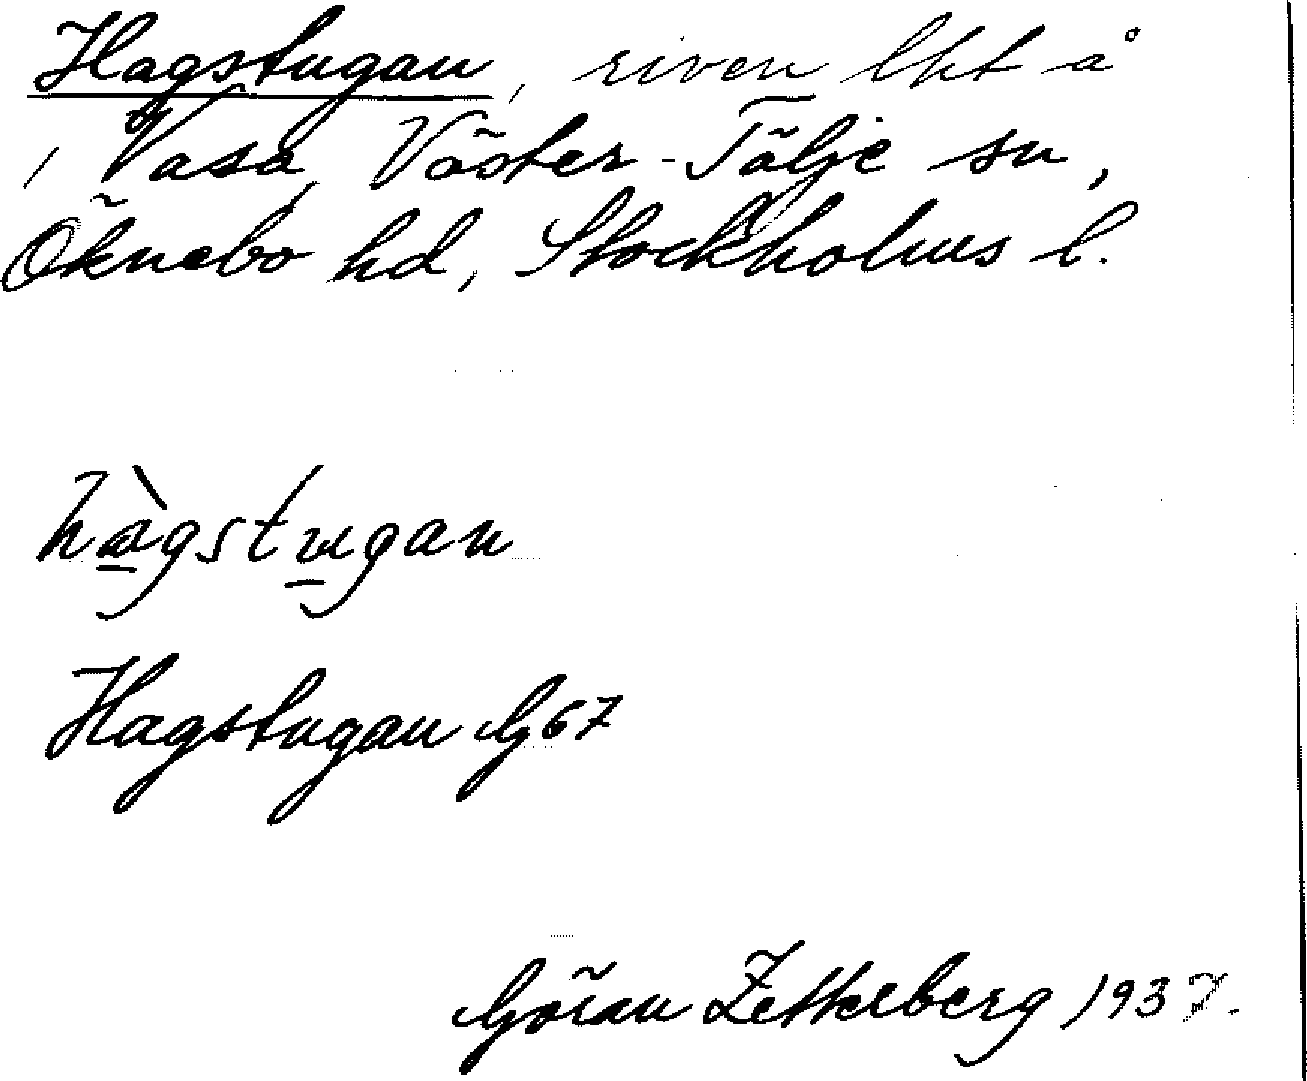 Hagstugan, riven lht å
, Vasa, Väster-Tälje sn,
Öknebo hd, Stockholms l.
hàgstugan
Hagstugan G67
Göran Zetterberg 1937.